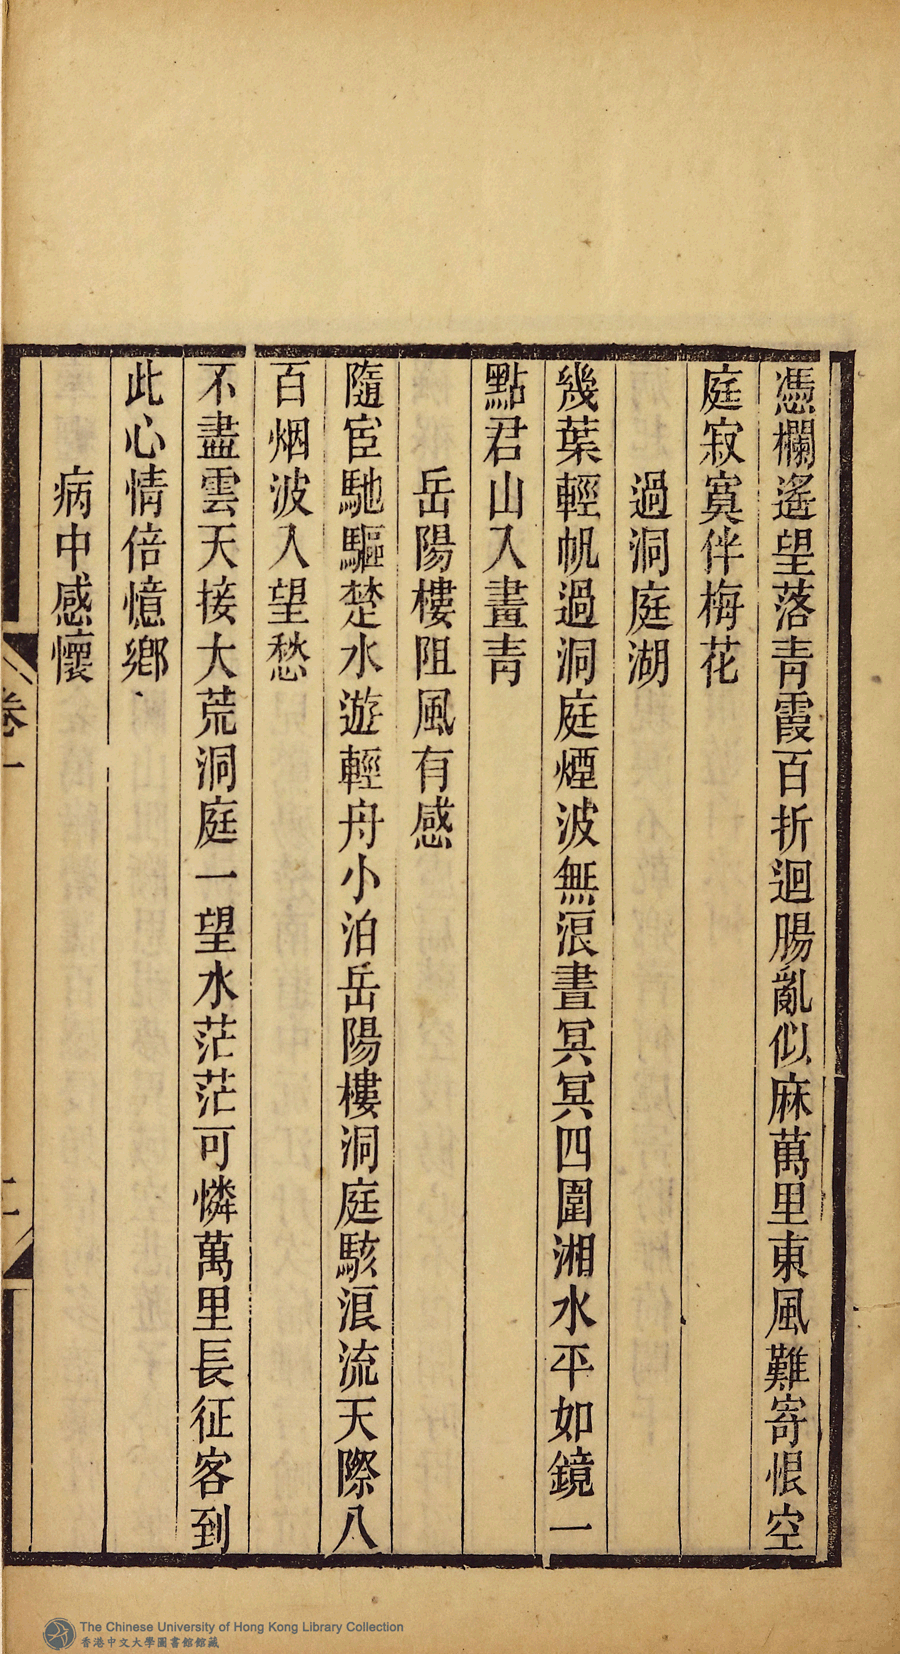 憑欄遙望落青霞百折迴腸亂似麻萬里東風難寄恨空
庭寂寞伴梅花
過洞庭湖
幾葉輕帆過洞庭煙波無浪晝冥冥四圍湘水平如鏡一
點君山入畫青
岳陽樓阻風有感
隨宦馳驅楚水遊輕舟小泊岳陽樓洞庭駭浪流天際八
百烟波入望愁
不盡雲天接大荒洞庭一望水茫茫可憐萬里長征客到
此心情倍憶鄉
病中感懷
卷一
The Chinese University of Hong Kong Library Collection
香港中文大學圖書館館藏